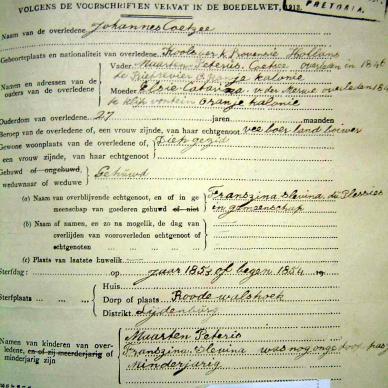 VOLGENS DE VOORSCHRIFTEN VERVAT IN DE BOEDELWET, 1913.
PRETORIA.
Naam van de overledene Johannes Coetzee
Geboorteplaats en nationaliteit van overledene
Namen en adressen van de ouders van de overledene
Vader Maarten Peterus Coetzee overleden in
Oranje kolonie
Moeder Elsie Catarina v.der Merwe overleden
te Klip vontein Oranje kalonie
Ouderdom van overledene 27 jaren maanden
Beroep van de overledene of, een vrouw zijnde, van haar echtgenoot vee boer land bouwer
Gewone woonplaats van de overledene of,
een vrouw zijnde, van haar echtgenoot
Gehuwd of ongehuwd,
weduwnaar of weduwe Gehuwd
(a) Naam van overblijvende echtgenoot, en of in gemeenschap van goederen gehuwd of niet
Franszina Elevina du Plessies
in gemeenschap
(b) Naam of namen, en zo na mogelik, de dag van overlijden van vooroverleden echtgenoot of echtgenoten
(c) Plaats van laatste huwelik
Sterfdag: op jaar 1853 of begen 1854 19
Sterfplaats
Huis
Dorp of plaats Roode walshoek
Distrikt Lydenburg
Namen van kinderen van overledene, en of zij meerderjarig of minderjarig zijn
Maarten Peteris
Franszina Elevina was nog
minderjarig